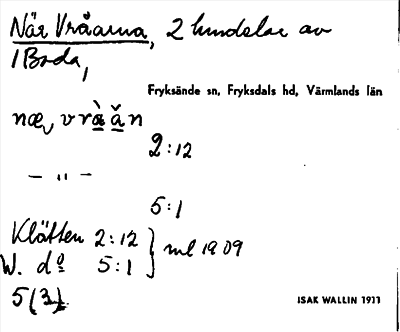 När Vråarna, 2 hundelar av
1 Boda,
Fryksände sn, Fryksdals hd, Värmlands län
2:12
– " –
5:1
Klätten 2:12
W. do 5:1
ml 1909
5(3)
ISAK WALLIN 1911